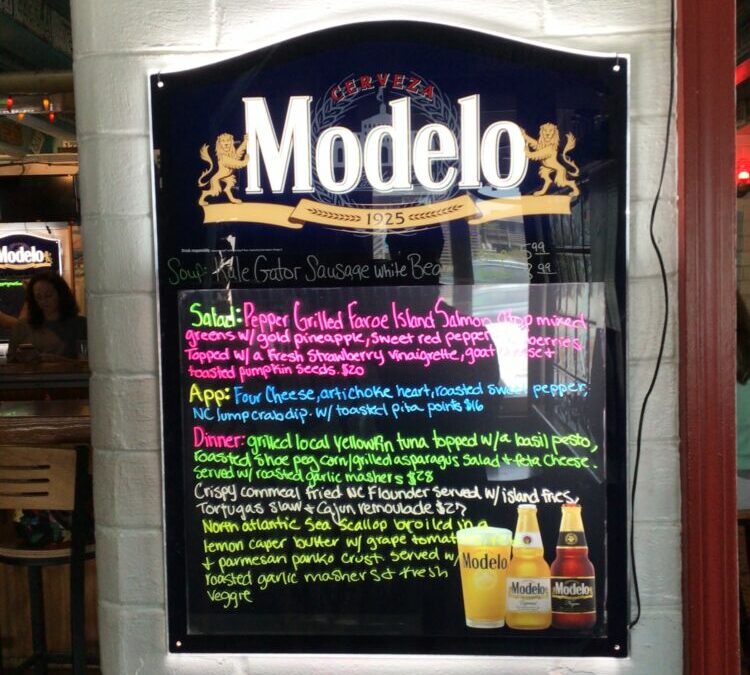 CERVEZA
Modelo
1925
Soup: Kale Gator Sausage White Bean 5.99
8.99
Salad: Pepper Grilled Faroe Island Salmon atop mixed
greens w/ gold pineapple, sweet red pepper
Topped w/a fresh Strawberry vinaigrette, goat cheese +
toasted pumpkin seeds. $20
App: Four Cheese, artichoke heart, roasted sweet pepper,
NC lump crab dip. w/ toasted pita points $16
Dinner: grilled local Yellowfin tuna topped w/a basil pesto,
roasted shoe peg corn/grilled asparagus salad + feta cheese.
Served w/ roasted garlic mashers $28
Crispy cornmeal fried NC Flounder served w/ island fries,
Tortugas slaw + Cajun remoulade $27
North atlantic Sea Scallop broiled in a
lemon caper butter w/ grape tomato
+ parmesan panko crust. Served w/
roasted garlic mashers + fresh
veggie
Modelo
Modelo
Modelo
Modelo